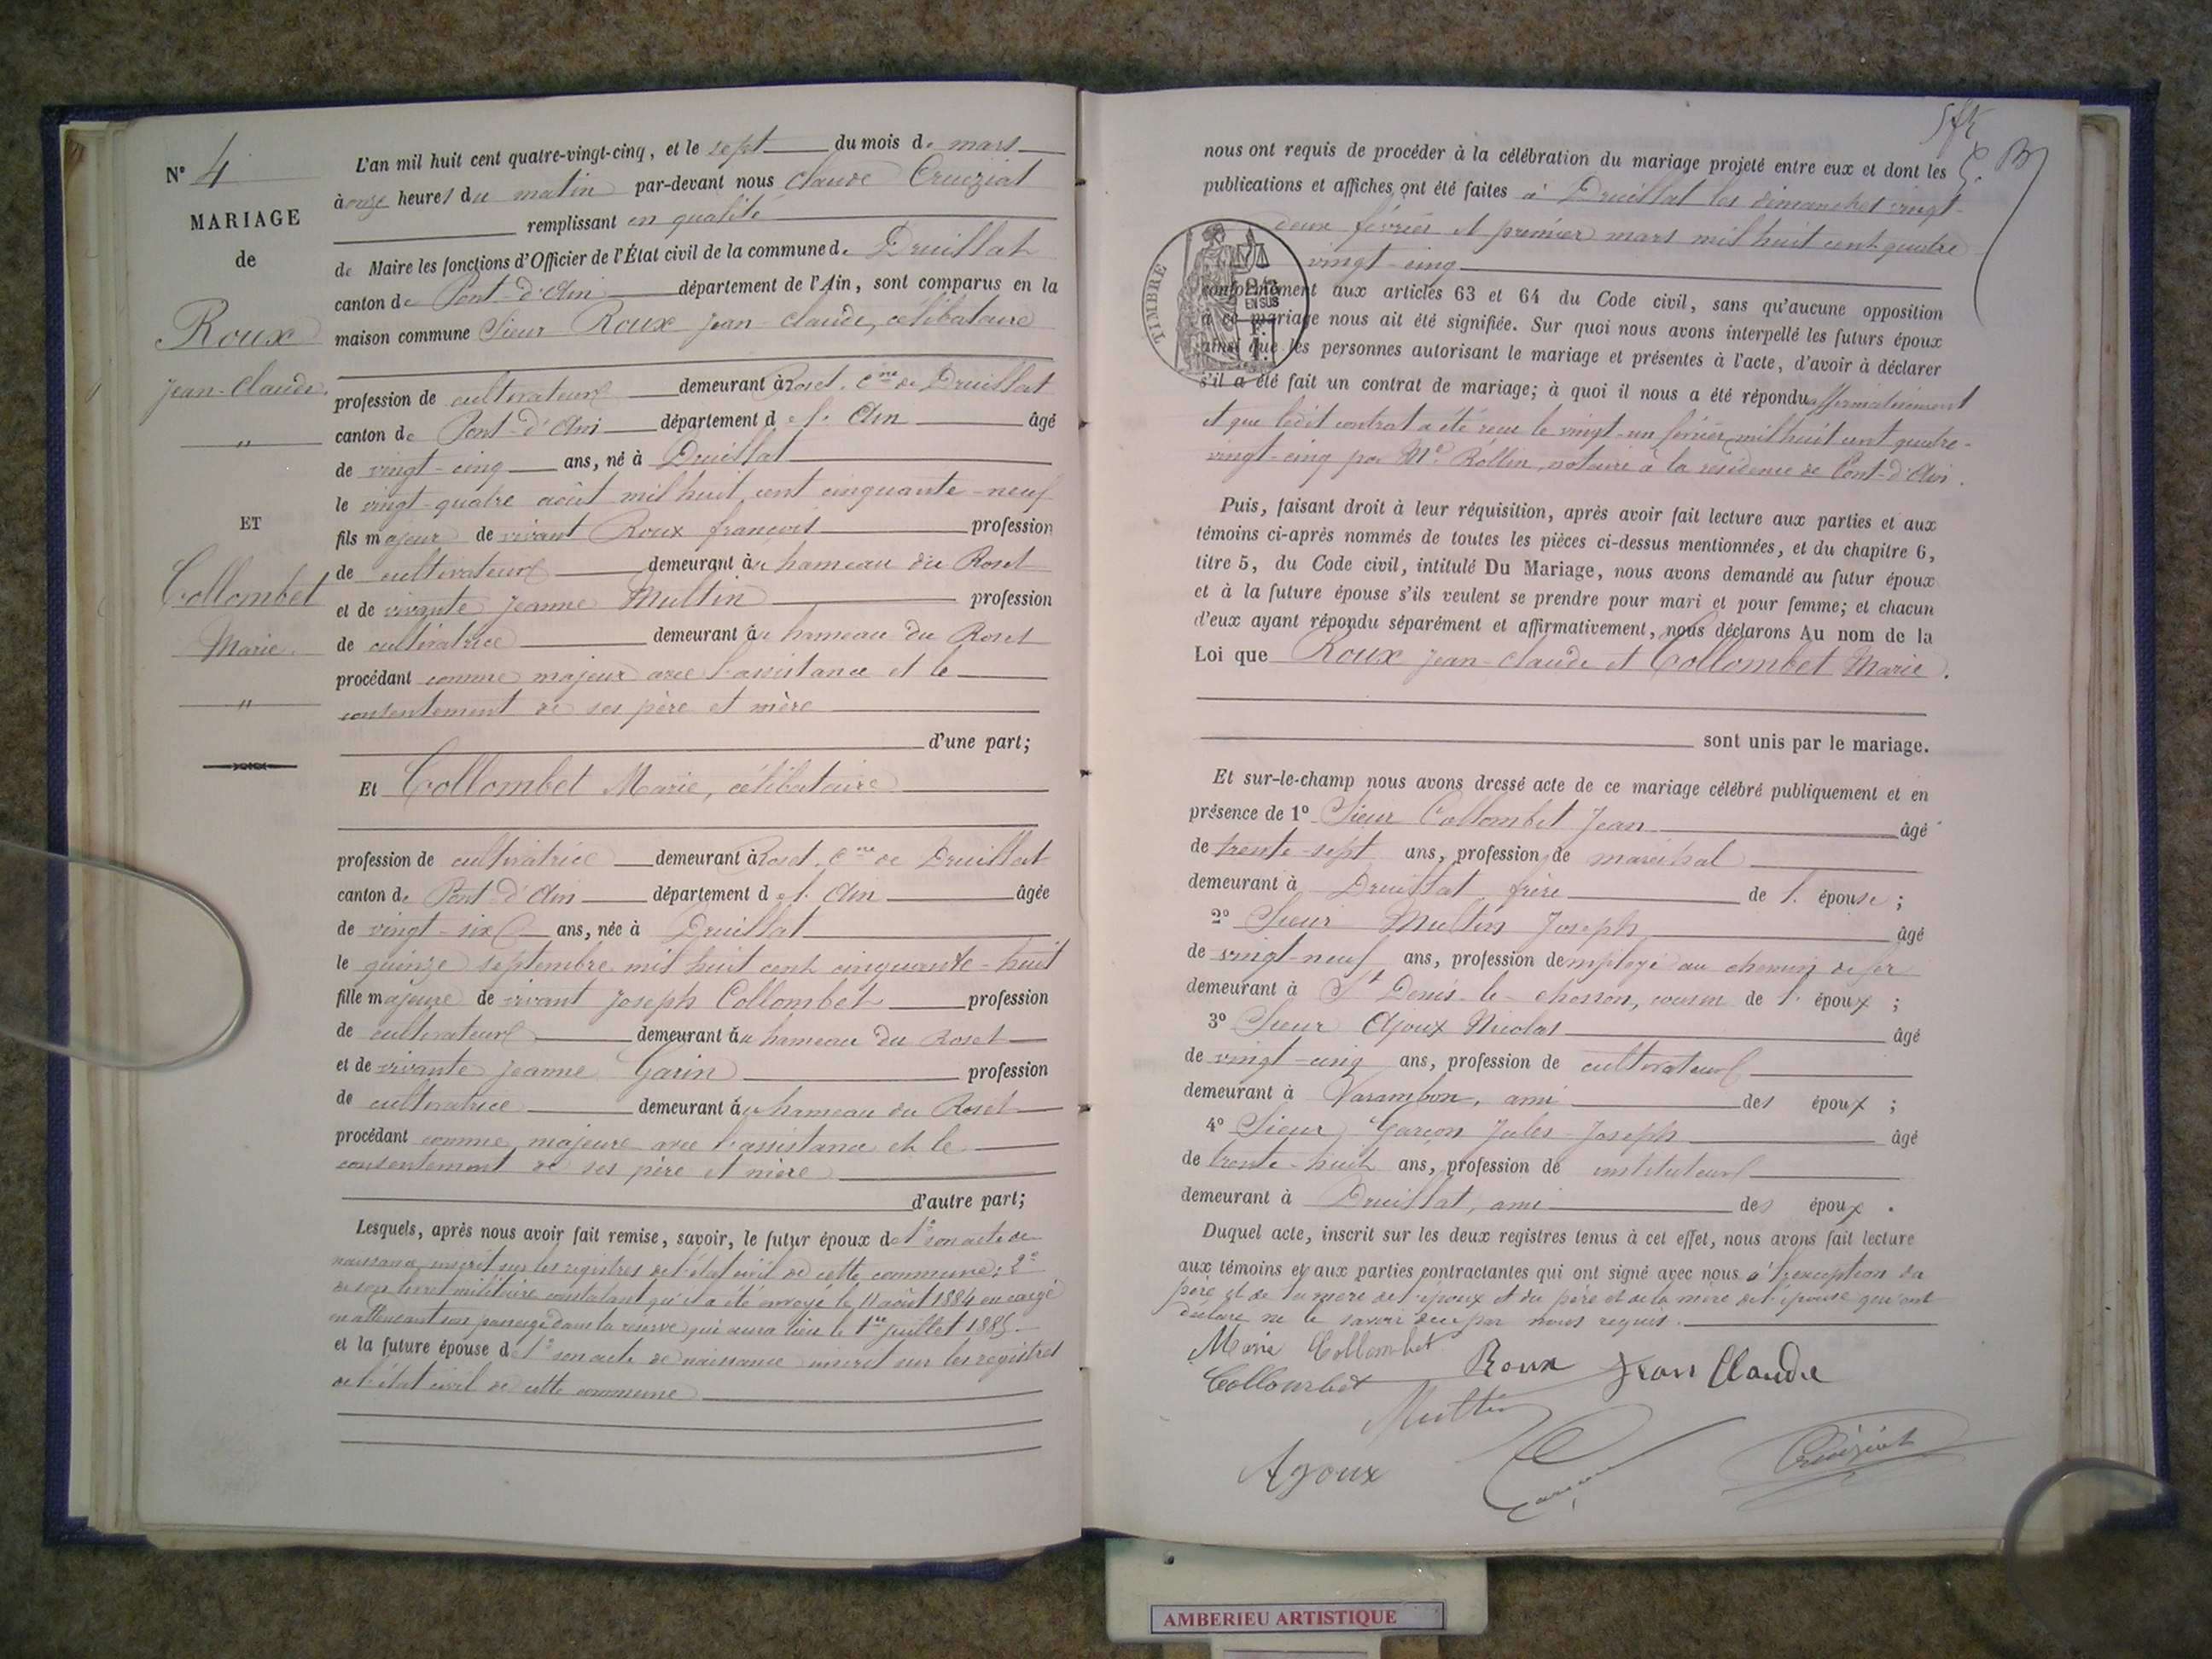 N° 4
MARIAGE
de
Roux
Jean-Claude.
"
ET
Collombet
Marie.
"
L'an mil huit cent quatre-vingt-cinq, et le sept du mois de mars
à onze heures du matin par-devant nous Claude Cruiziat
remplissant en qualité
de Maire les fonctions d'Officier de l'État civil de la commune de Druillat
canton de Pont-d'Ain département de l'Ain, sont comparus en la
maison commune Sieur Roux Jean-Claude, célibataire
profession de cultivateur demeurant à Roset, Cne de Druillat
canton de Pont-d'Ain département de l'Ain âgé
de vingt-cinq ans, né à Druillat
le vingt-quatre août mil huit cent cinquante-neuf
fils majeur de vivant Roux françois profession
de cultivateur demeurant au hameau du Roset
et de vivante Jeanne Multin profession
de cultivatrice demeurant au hameau du Roset
procédant comme majeur avec l'assistance et le
consentement de ses père et mère
d'une part;
Et Collombet Marie, célibataire
profession de cultivatrice demeurant à Roset, Cne de Druillat
canton de Pont-d'Ain département de l'Ain âgée
de vingt-six ans, née à Druillat
le quinze septembre mil huit cent cinquante-huit
fille majeure de vivant Joseph Collombet profession
de cultivateur demeurant au hameau du Roset
et de vivante Jeanne Garin profession
de cultivatrice demeurant au hameau du Roset
procédant comme majeure avec l'assistance et le
consentement de ses père et mère
d'autre part;
Lesquels, après nous avoir fait remise, savoir, le futur époux de 1° son acte de
naissance inscrit sur les registres de l'état civil de cette commune; 2°
de son livret militaire constatant qu'il a été envoyé le 11 août 1884 en congé
en attendant son passage dans la réserve qui aura lieu le 1er juillet 1885.
et la future épouse de 1° son acte de naissance inscrit sur les registres
de l'état civil de cette commune
nous ont requis de procéder à la célébration du mariage projeté entre eux et dont les
publications et affiches ont été faites à Druillat les dimanches vingt-
deux février et premier mars mil huit cent quatre
vingt-cinq
conformément aux articles 63 et 64 du Code civil, sans qu'aucune opposition
à ce mariage nous ait été signifiée. Sur quoi nous avons interpellé les futurs époux
ainsi que les personnes autorisant le mariage et présentes à l'acte, d'avoir à déclarer
s'il a été fait un contrat de mariage; à quoi il nous a été répondu affirmativement
et que ledit contrat a été reçu le vingt-un février mil huit cent quatre-
vingt-cinq par Me Rollin, notaire à la résidence de Pont-d'Ain.
TIMBRE
EN SUS
Puis, faisant droit à leur réquisition, après avoir fait lecture aux parties et aux
témoins ci-après nommés de toutes les pièces ci-dessus mentionnées, et du chapitre 6,
titre 5, du Code civil, intitulé Du Mariage, nous avons demandé au futur époux
et à la future épouse s'ils veulent se prendre pour mari et pour femme; et chacun
d'eux ayant répondu séparément et affirmativement, nous déclarons Au nom de la
Loi que Roux Jean-Claude et Collombet Marie.
sont unis par le mariage.
Et sur-le-champ nous avons dressé acte de ce mariage célébré publiquement et en
présence de 1° Sieur Collombet Jean âgé
de trente-sept ans, profession de maréchal
demeurant à Druillat frère de l'épouse;
2° Sieur Multin Joseph âgé
de vingt-neuf ans, profession d'employé au chemin de fer
demeurant à St Denis-le-Chosson, cousin de l'époux;
3° Sieur Ajoux Nicolas âgé
de vingt-cinq ans, profession de cultivateur
demeurant à Varambon, ami des époux;
4° Sieur Garçon Jules-Joseph âgé
de trente-huit ans, profession de instituteur
demeurant à Druillat, ami des époux.
Duquel acte, inscrit sur les deux registres tenus à cet effet, nous avons fait lecture
aux témoins et aux parties contractantes qui ont signé avec nous à l'exception du
père et de la mère de l'époux et du père et de la mère de l'épouse qui ont
déclaré ne le savoir de ce par nous requis.
Marie Collombet
Collombet Roux Jean Claude
Multin
Ajoux Cruiziat
AMBERIEU ARTISTIQUE